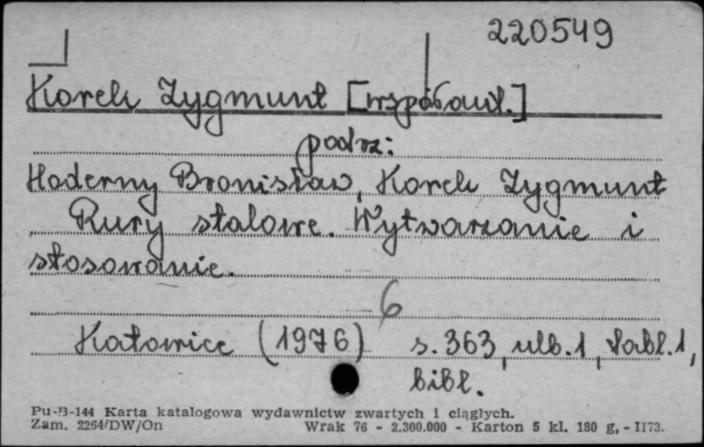 220549
Korek Zygmunt [współaut.]
podrz:
Haderny Bronisław, Korek Zygmunt
Rury stalowe. Wytwarzanie i
stosowanie.
6
Katowice (1976) s. 363, ulb. 1, tabl. 1,
bibl.
Pu-B-144 Karta katalogowa wydawnictw zwartych i ciągłych.
Zam. 2264/DW/On Wrak 76 - 2.300.000 - Karton 5 kl. 180 g, - II73.